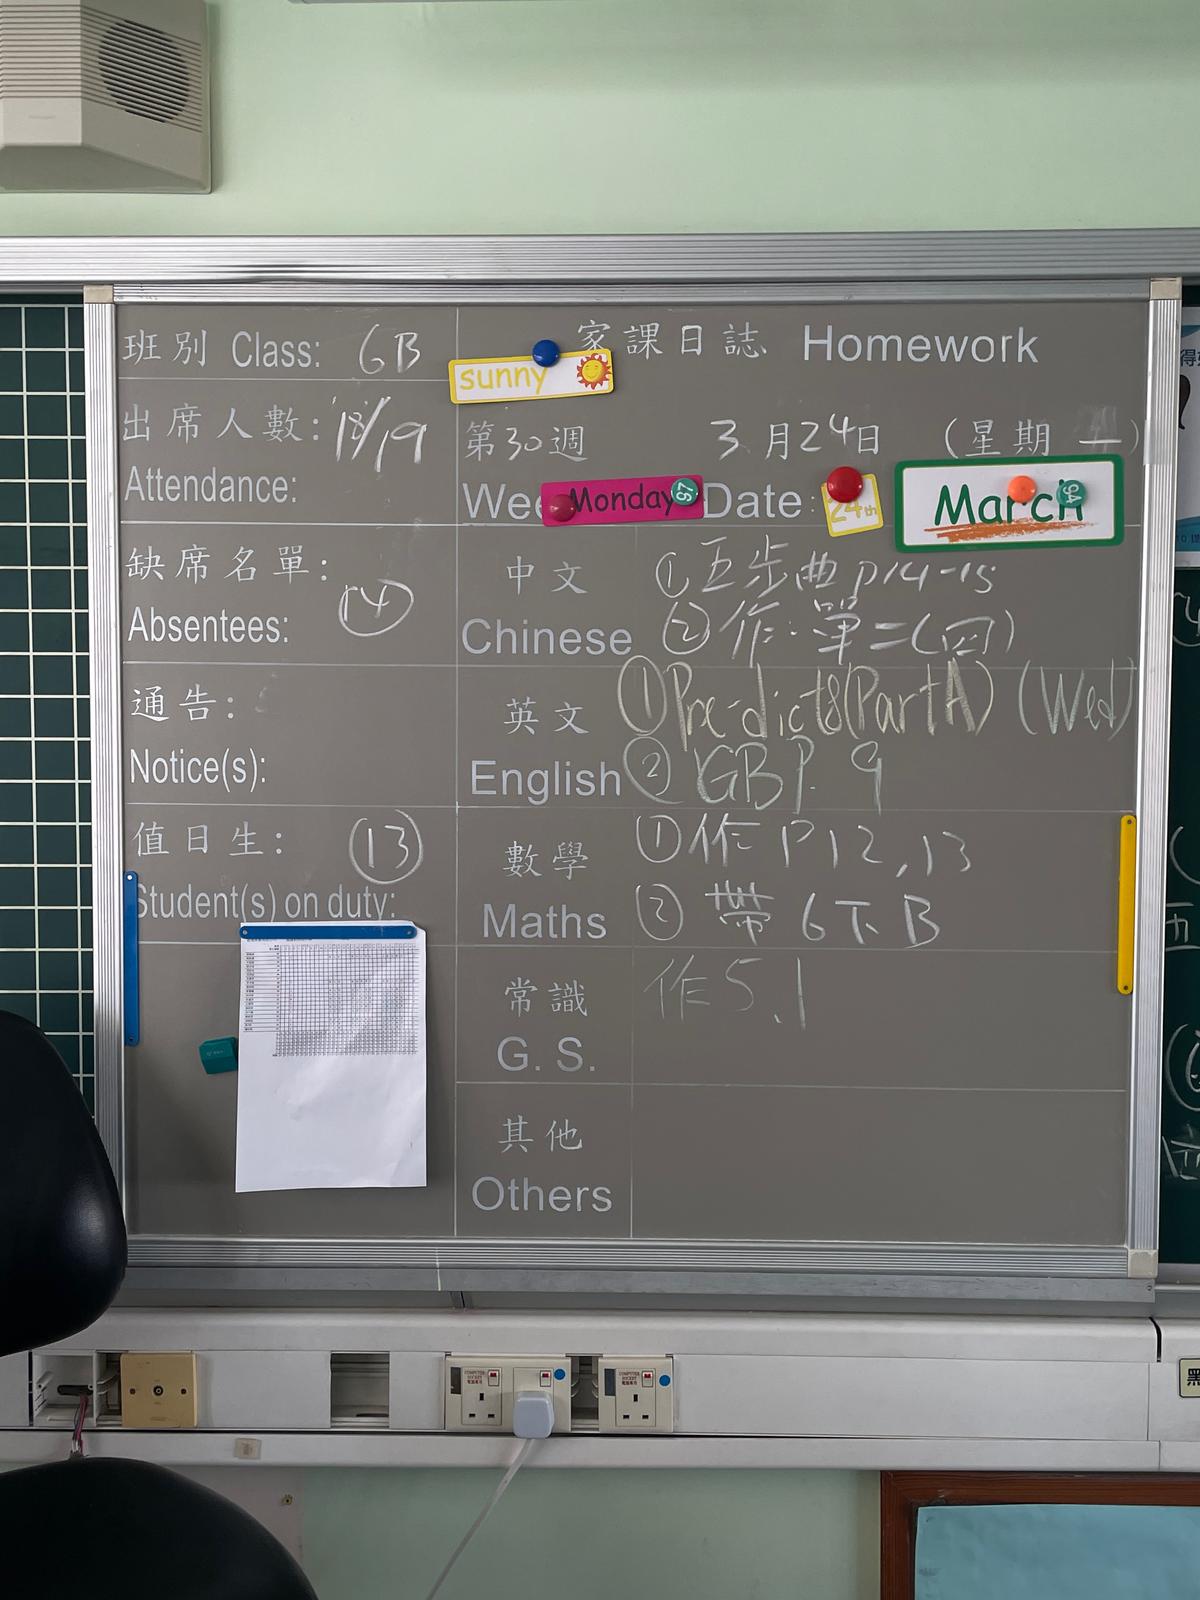 班別 Class: 6B
出席人數: 18/19
Attendance:
缺席名單:
Absentees: 14
通告:
Notice(s):
值日生: 13
Student(s) on duty:
家課日誌 Homework
sunny
第30週 3月24日 (星期一)
Wee Monday 97 Date: 24th March 94
中文 ①五步曲 P14-15
Chinese ②作:單二(四)
英文 ①Pre-dict8(PartA) (Wed)
English ②GB P.9
數學 ①作 P12,13
Maths ②帶6下B
常識 作5.1
G. S.
其他
Others
COMPUTER SOCKET 電腦專用
COMPUTER SOCKET 電腦專用
黑